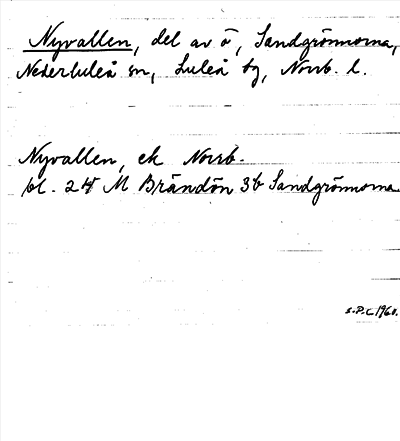 Nyvallen, del av ö, Sandgrönnorna,
Nederluleå sn, Luleå tg, Norrb. l.
Nyvallen, ek Norrb.
bl. 24 M Brändön 3b Sandgrönnorna
S.P.C. 1960.